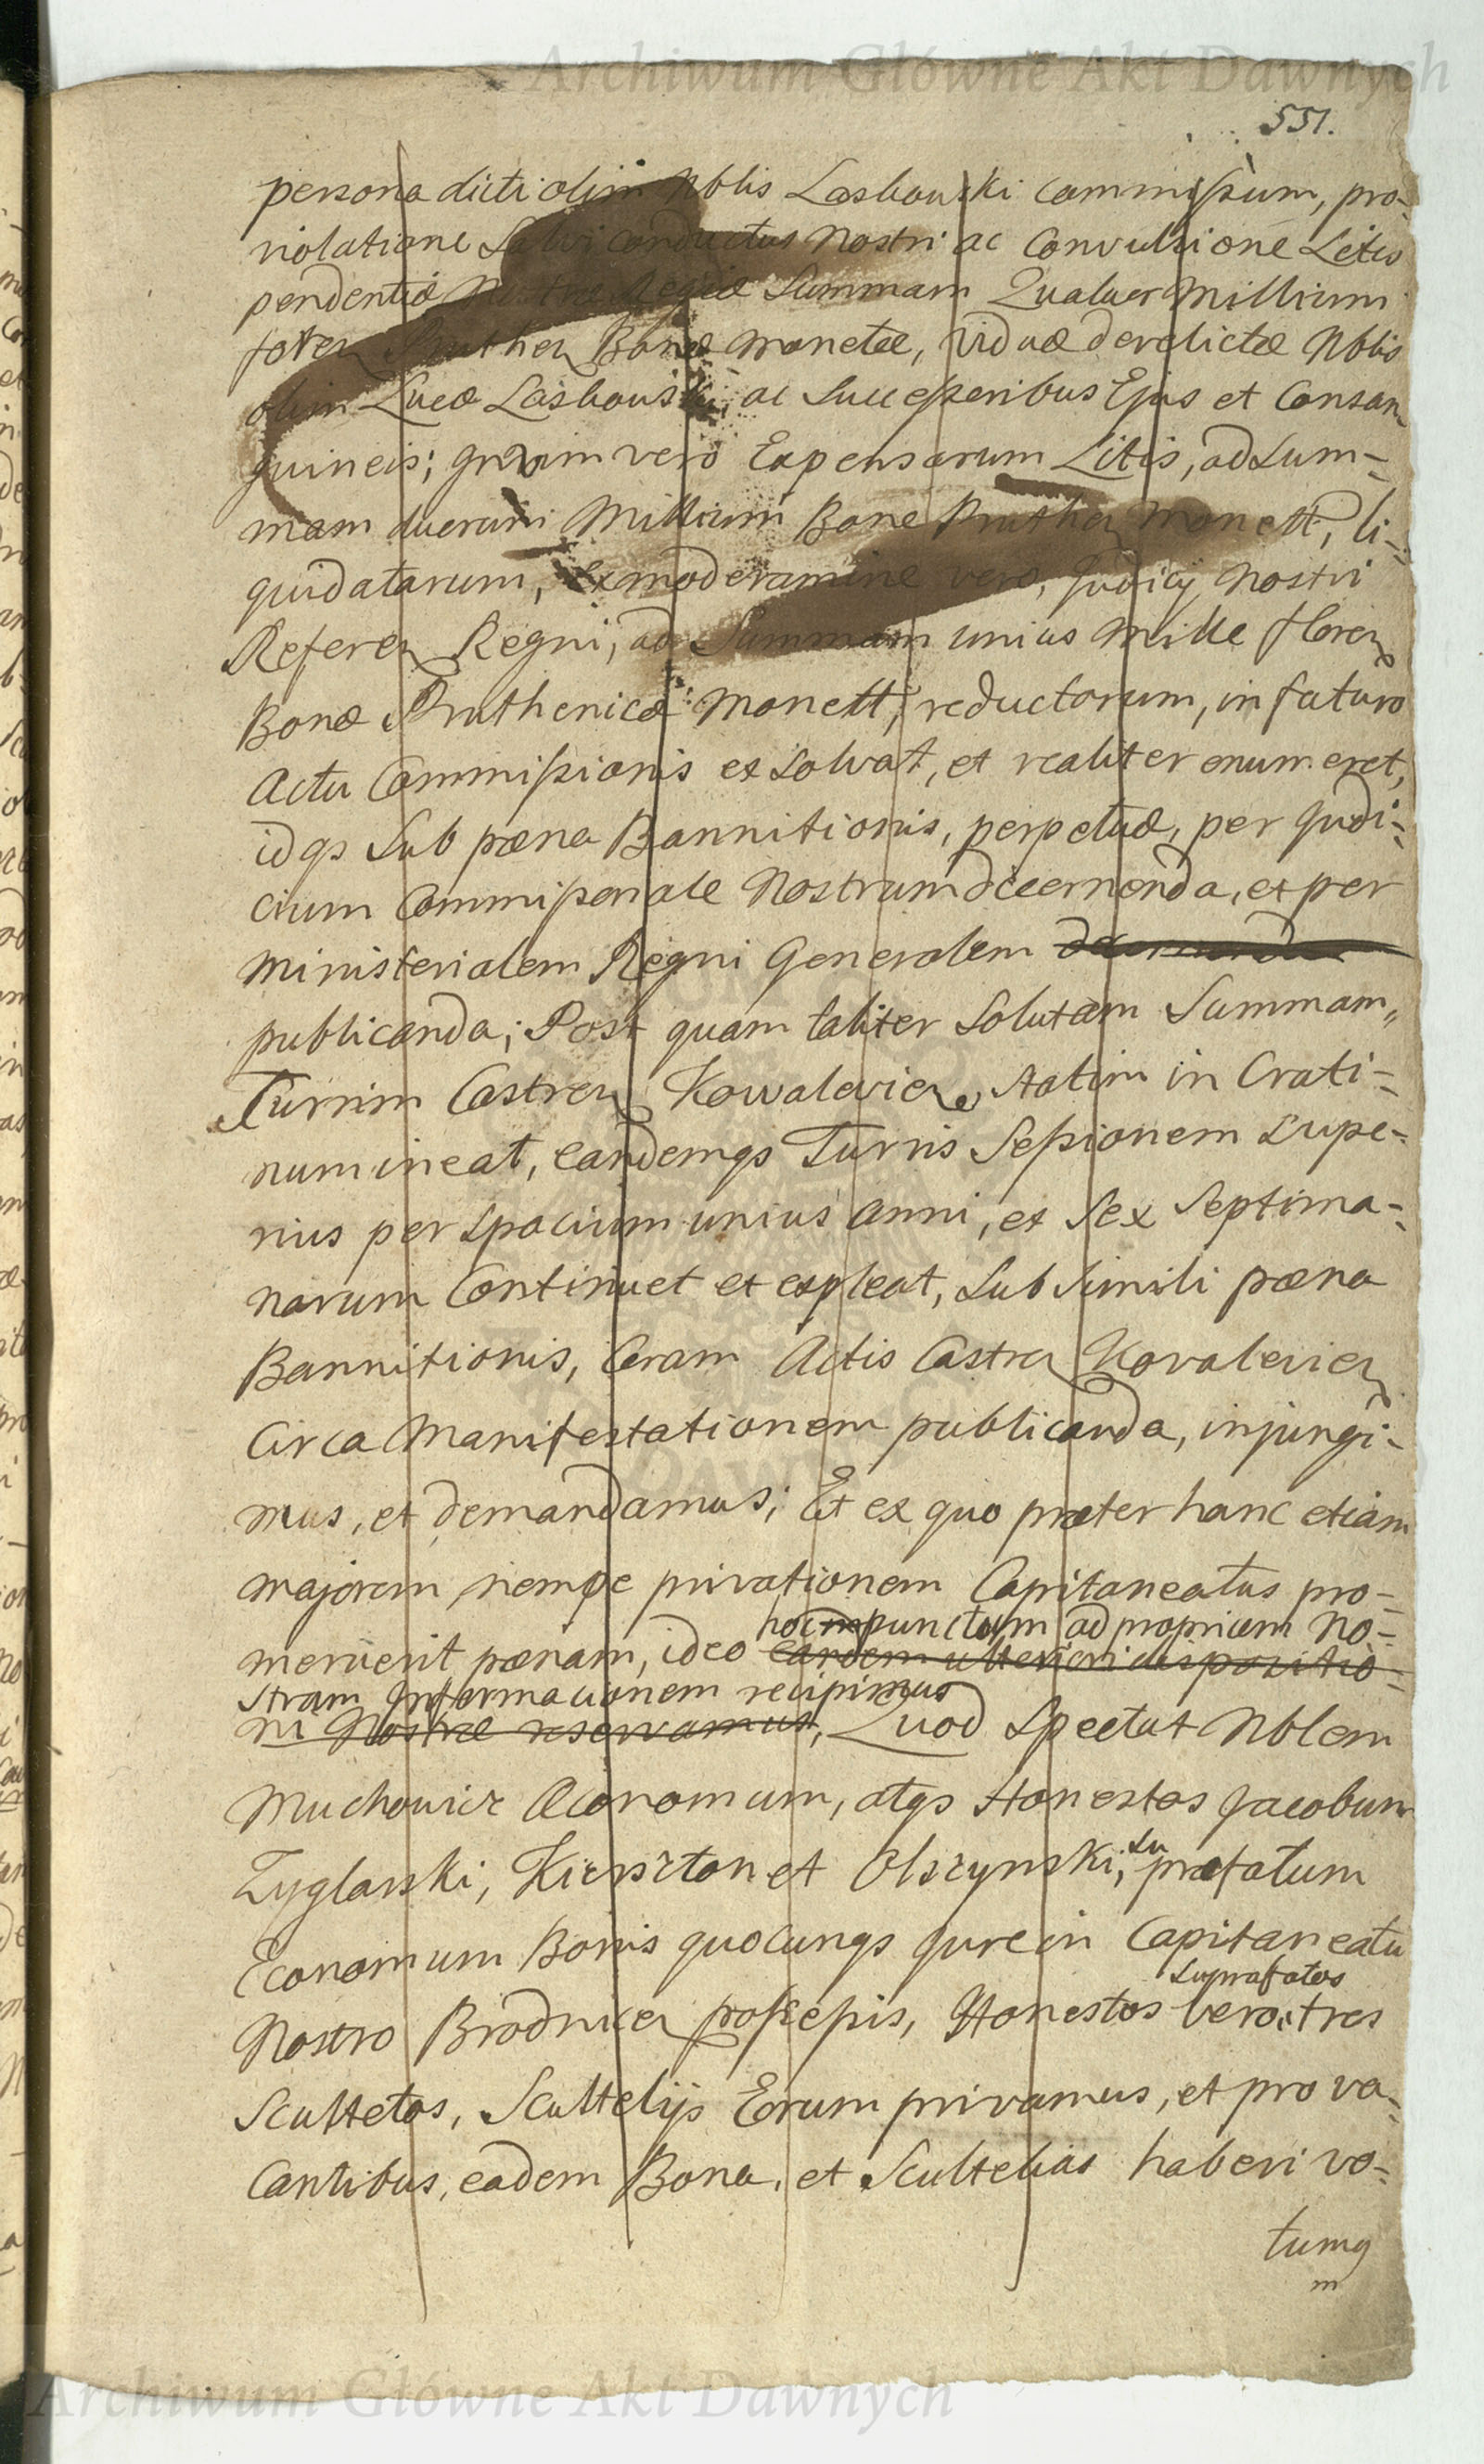 Archiwum Główne Akt Dawnych
551.
persona dicti olim Nblis Laskowski commissum, pro-
violatione Salvi conductus Nostri ac Convulsione Litis
pendentiæ Nostræ Regiæ Summam Quatuor Millium
floren Pruthen Bonæ monetæ, viduæ derelictæ Nblis
olim Lucæ Laskowski, ac Successoribus Ejus et Consan
guineis; vero Expensarum Litis, ad Sum-
mam duorum Millium Bone Pruthen monett, li-
quidatarum, ex moderamine vero, Judicij Nostri
Referen Regni, ad Summam unius Mille floren
Bonæ Pruthenicæ Monett, reductorum, in futuro
Actu Commissionis exsolvat, et realiter enumeret,
idqs Sub pæna Bannitionis, perpetuæ, per Judi-
cium Commissoriale Nostrum decernenda, et per
Ministerialem Regni Generalem decernenda
publicanda; Post quam taliter Solutam Summam,,
Turrim Castren Kowalevien, statim in Crati-
num ineat, eandemqs Turris Sessionem Supe-
rius per Spacium unius anni, et Sex Septima-
narum Continuet et expleat, Sub simili pæna
Bannitionis, Coram Actis Castren Kovalevien
Circa Manifestationem publicanda, injungi-
mus, et demandamus; Et ex quo præter hanc etiam
majorem nempe privationem Capitaneatus pro-
hoc punctum ad propriam No-
meruerit pænam, ideo eandem ulteriori dispozitio-
stram Informacionem recipimus
ni Nostræ reservamus, Quod Spectat Nblem
Muchowicz Œconomum, atqs Honestos Jacobum
Zyglarski, Kierszton et Olszynski, Su præfatum
Economum Bonis quocunqs Jure in Capitaneatu
Suprafatos
Nostro Brodnicen possessis, Honestos vero tres
Scultetos, Scultetijs Eorum privamus, et pro va-
cantibus, eadem Bona, et Scultetias haberi vo-
lumq
m
Archiwum Główne Akt Dawnych